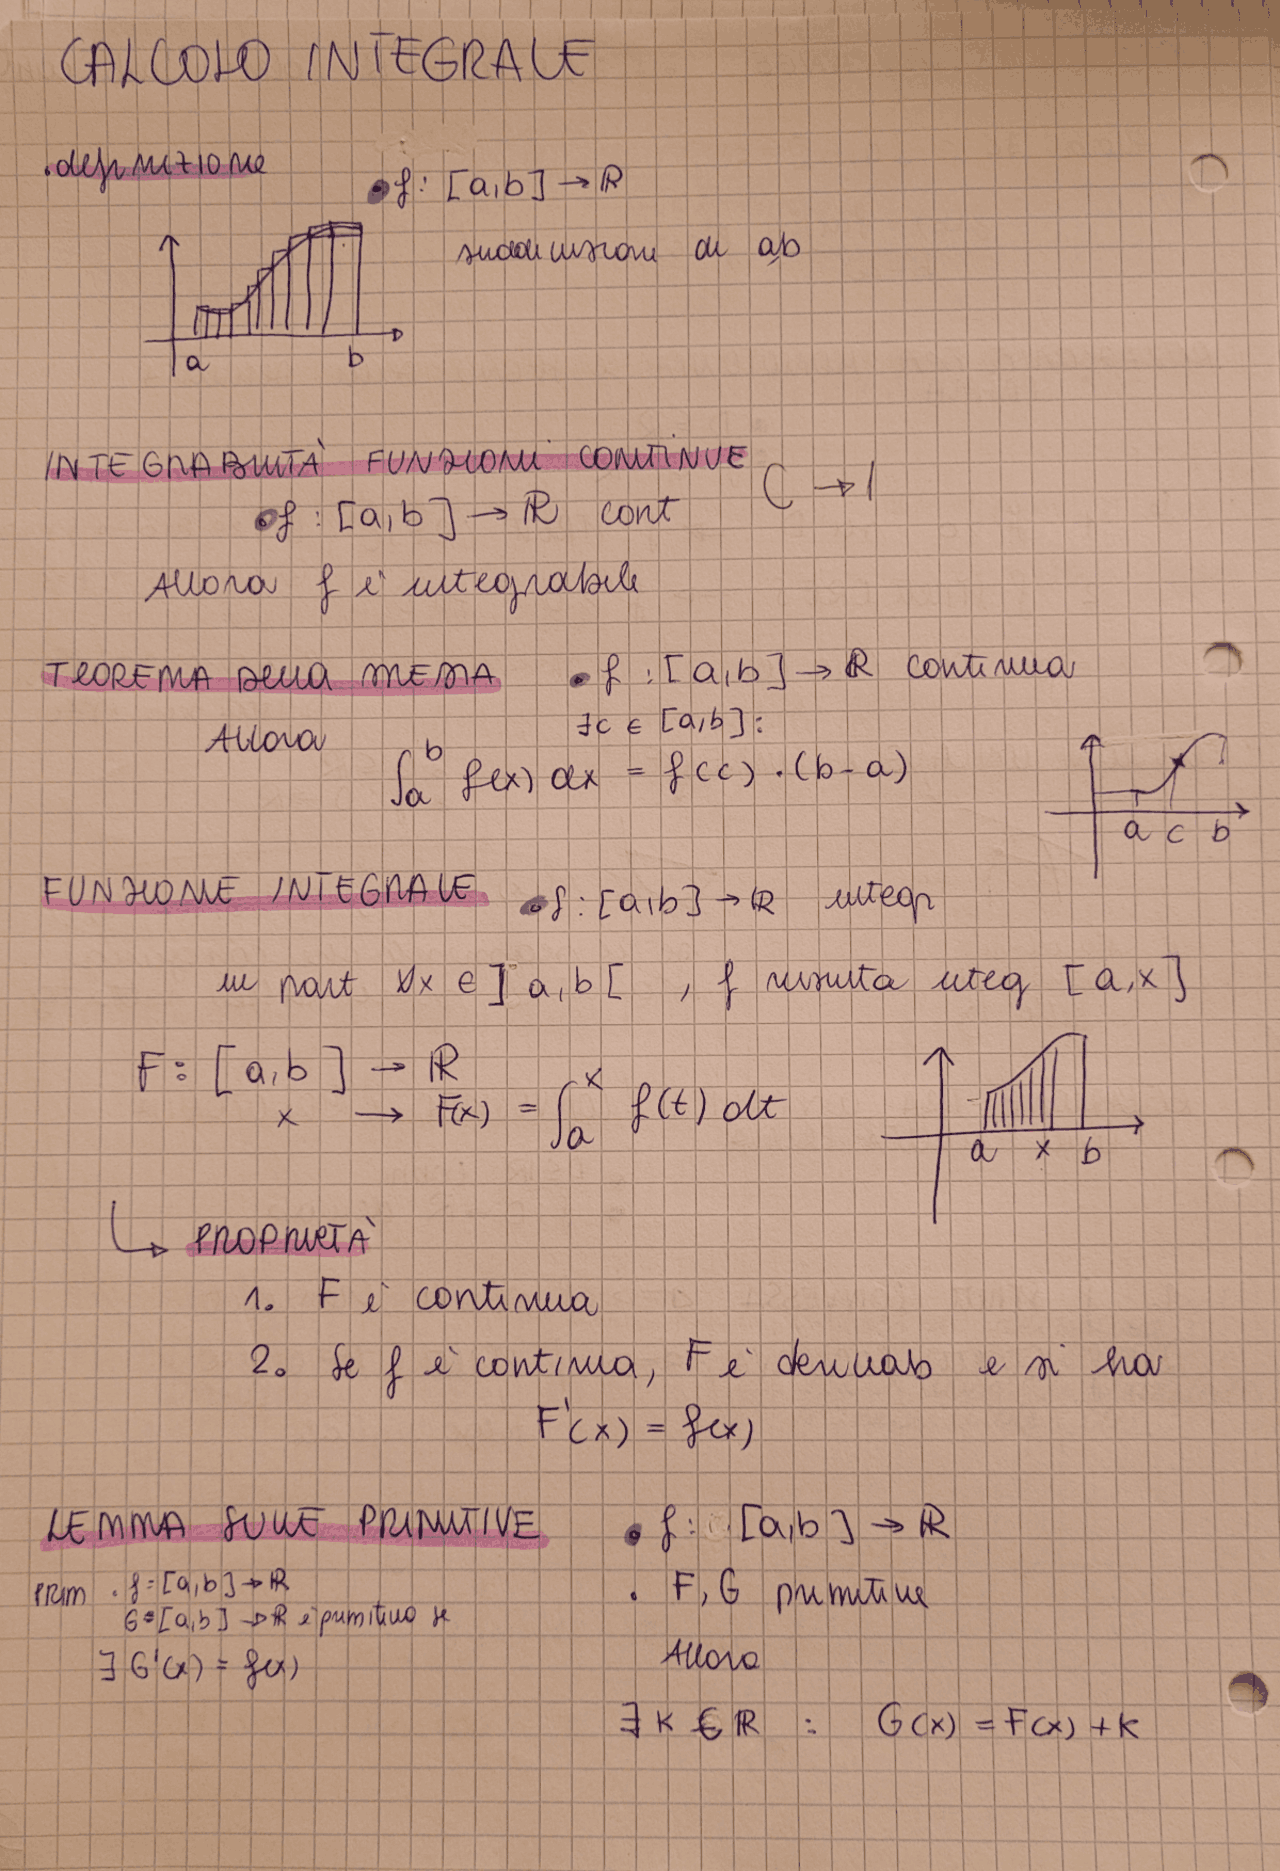 CALCOLO INTEGRALE
.definizione
f: [a,b] → ℝ
suddivisioni di a,b
a b
INTEGRABILITÀ FUNZIONI CONTINUE
C → I
f: [a,b] → ℝ cont
Allora f è integrabile
TEOREMA Della MEDIA
f: [a,b] → ℝ continua
∃c ∈ [a,b]:
Allora
∫_a^b f(x) dx = f(c) · (b-a)
a c b
FUNZIONE INTEGRALE
f: [a,b] → ℝ integr
in part ∀x ∈ ]a,b[ , f risulta integ [a,x]
F: [a,b] → ℝ
x → F(x) = ∫_a^x f(t) dt
a x b
PROPRIETÀ
1. F è continua
2. Se f è continua, F è derivab e si ha
F'(x) = f(x)
LEMMA SULLE PRIMITIVE
f: [a,b] → ℝ
. F, G primitive
Allora
∃ k ∈ ℝ : G(x) = F(x) + k
PRIM . f=[a,b] → ℝ
G=[a,b] → ℝ è primitiva se
∃ G'(x) = f(x)